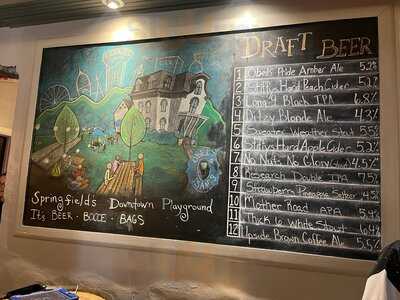 DRAFT BEER
1 Obed's Pride Amber Ale 5.2%
2 Stiltys Hard Peach Cider 5.1%
3 Long Black IPA 6.8%
4 Ditzy Blonde Ale 4.3%
5 Sweater Weather Stout 5.5%
6 Hard Apple Cider 5.3%
7 No Nuts No Glory 4.5%
8 Research Double IPA 7.5%
9 Strawberry Pineapple Seltzer 4.5%
10 Mother Road APA 5.9%
11 Thick White Stout 6.4%
12 Upside Brown Coffee Ale 5.5%
Springfield's Downtown Playground
It's BEER · BOCCE · BAGS